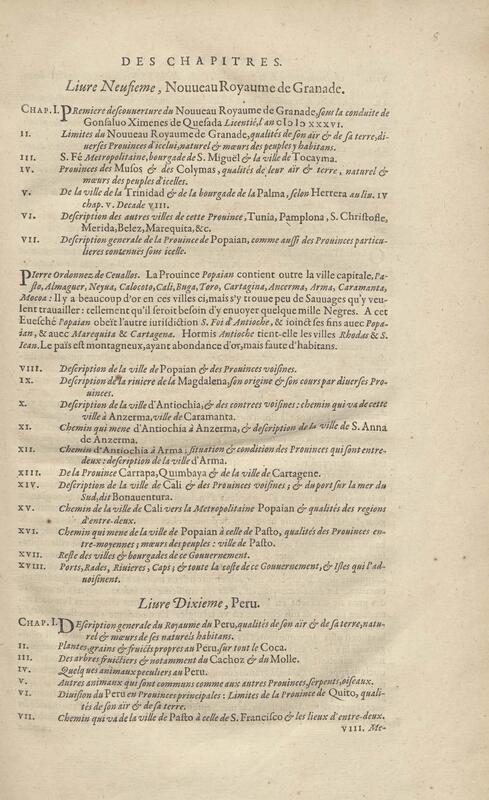 8
DES CHAPITRES.
Liure Neufieme, Nouueau Royaume de Granade.
CHAP. I. PRemiere descouuerture du Nouueau Royaume de Granade, sous la conduite de
Gonsaluo Ximenes de Quesada Licentié, l'an cIↄ Iↄ XXXVI.
II. Limites du Nouueau Royaume de Granade, qualités de son air & de sa terre, di-
uerses Prouinces d'icelui, naturel & mœurs des peuples y habitans.
III. S. Fé Metropolitaine, bourgade de S. Miguël & la ville de Tocayma.
IV. Prouinces des Musos & des Colymas, qualités de leur air & terre, naturel &
mœurs des peuples d'icelles.
V. De la ville de la Trinidad & de la bourgade de la Palma, selon Herrera au liu. IV
chap. V. Decade VIII.
VI. Description des autres villes de cette Prouince, Tunia, Pamplona, S. Christofle,
Merida, Belez, Marequita, &c.
VII. Description generale de la Prouince de Popaian, comme aussi des Prouinces particu-
lieres contenuës sons icelle.
PIerre Ordonnez de Ceuallos. La Prouince Popaian contient outre la ville capitale, Pa-
sto, Almaguer, Neyua, Calocoto, Cali, Buga, Toro, Cartagina, Ancerma, Arma, Caramanta,
Mocoa: Il y a beaucoup d'or en ces villes ci, mais s'y trouue peu de Sauuages qu'y veu-
lent trauailler: tellement qu'il seroit besoin d'y enuoyer quelque mille Negres. A cet
Euesché Popaian obeït l'autre iurisdiction S. Foi d'Antioche, & ioinct ses fins auec Popa-
ian, & auec Marequita & Cartagena. Hormis Antioche tient-elle les villes Rhodas & S.
Iean. Le païs est montagneux, ayant abondance d'or, mais faute d'habitans.
VIII. Description de la ville de Popaian & des Prouinces voisines.
IX. Description de la riuiere de la Magdalena, son origine & son cours par diuerses Pro-
uinces.
X. Description de la ville d'Antiochia, & des contrees voisines: chemin qui va de cette
ville à Anzerma, ville de Caramanta.
XI. Chemin qui mene d'Antiochia à Anzerma, & description de la ville de S. Anna
de Anzerma.
XII. Chemin d'Antiochia à Arma; situation & condition des Prouinces qui sont entre-
deux: description de la ville d'Arma.
XIII. De la Prouince Carrapa, Quimbaya & de la ville de Cartagene.
XIV. Description de la ville de Cali & des Prouinces voisines; & du port sur la mer du
Sud, dit Bonauentura.
XV. Chemin de la ville de Cali vers la Metropolitaine Popaian & qualités des regions
d'entre-deux.
XVI. Chemin qui mene de la ville de Popaian à celle de Pasto, qualités des Prouinces en-
tre-moyennes; mœurs des peuples: ville de Pasto.
XVII. Reste des villes & bourgades de ce Gouuernement.
XVIII. Ports, Rades, Riuieres, Caps; & toute la coste de ce Gouuernement, & Isles qui l'ad-
uoisinent.
Liure Dixieme, Peru.
CHAP. I. DEscription generale du Royaume du Peru, qualités de son air & de sa terre, natu-
rel & mœurs de ses naturels habitans.
II. Plantes, grains & fruicts propres au Peru, sur tout le Coca.
III. Des arbres fruictiers & notamment du Cachoz & du Molle.
IV. Quelques animaux peculiers au Peru.
V. Autres animaux qui sont communs comme aux autres Prouinces, serpents, oiseaux.
VI. Diuision du Peru en Prouinces principales: Limites de la Prouince de Quito, quali-
tés de son air & de sa terre.
VII. Chemin qui va de la ville de Pasto à celle de S. Francisco & les lieux d'entre-deux.
VIII. Me-